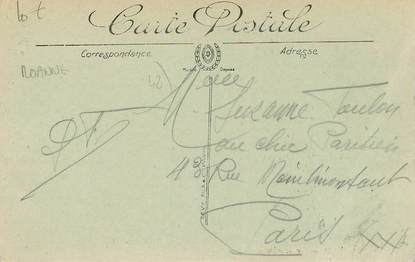 lot
Carte Postale
Correspondance
Adresse
ROANNE
(42)
Melle
Suzanne Toulon
au chic Parisien
48 Rue Menilmontant
Paris XX